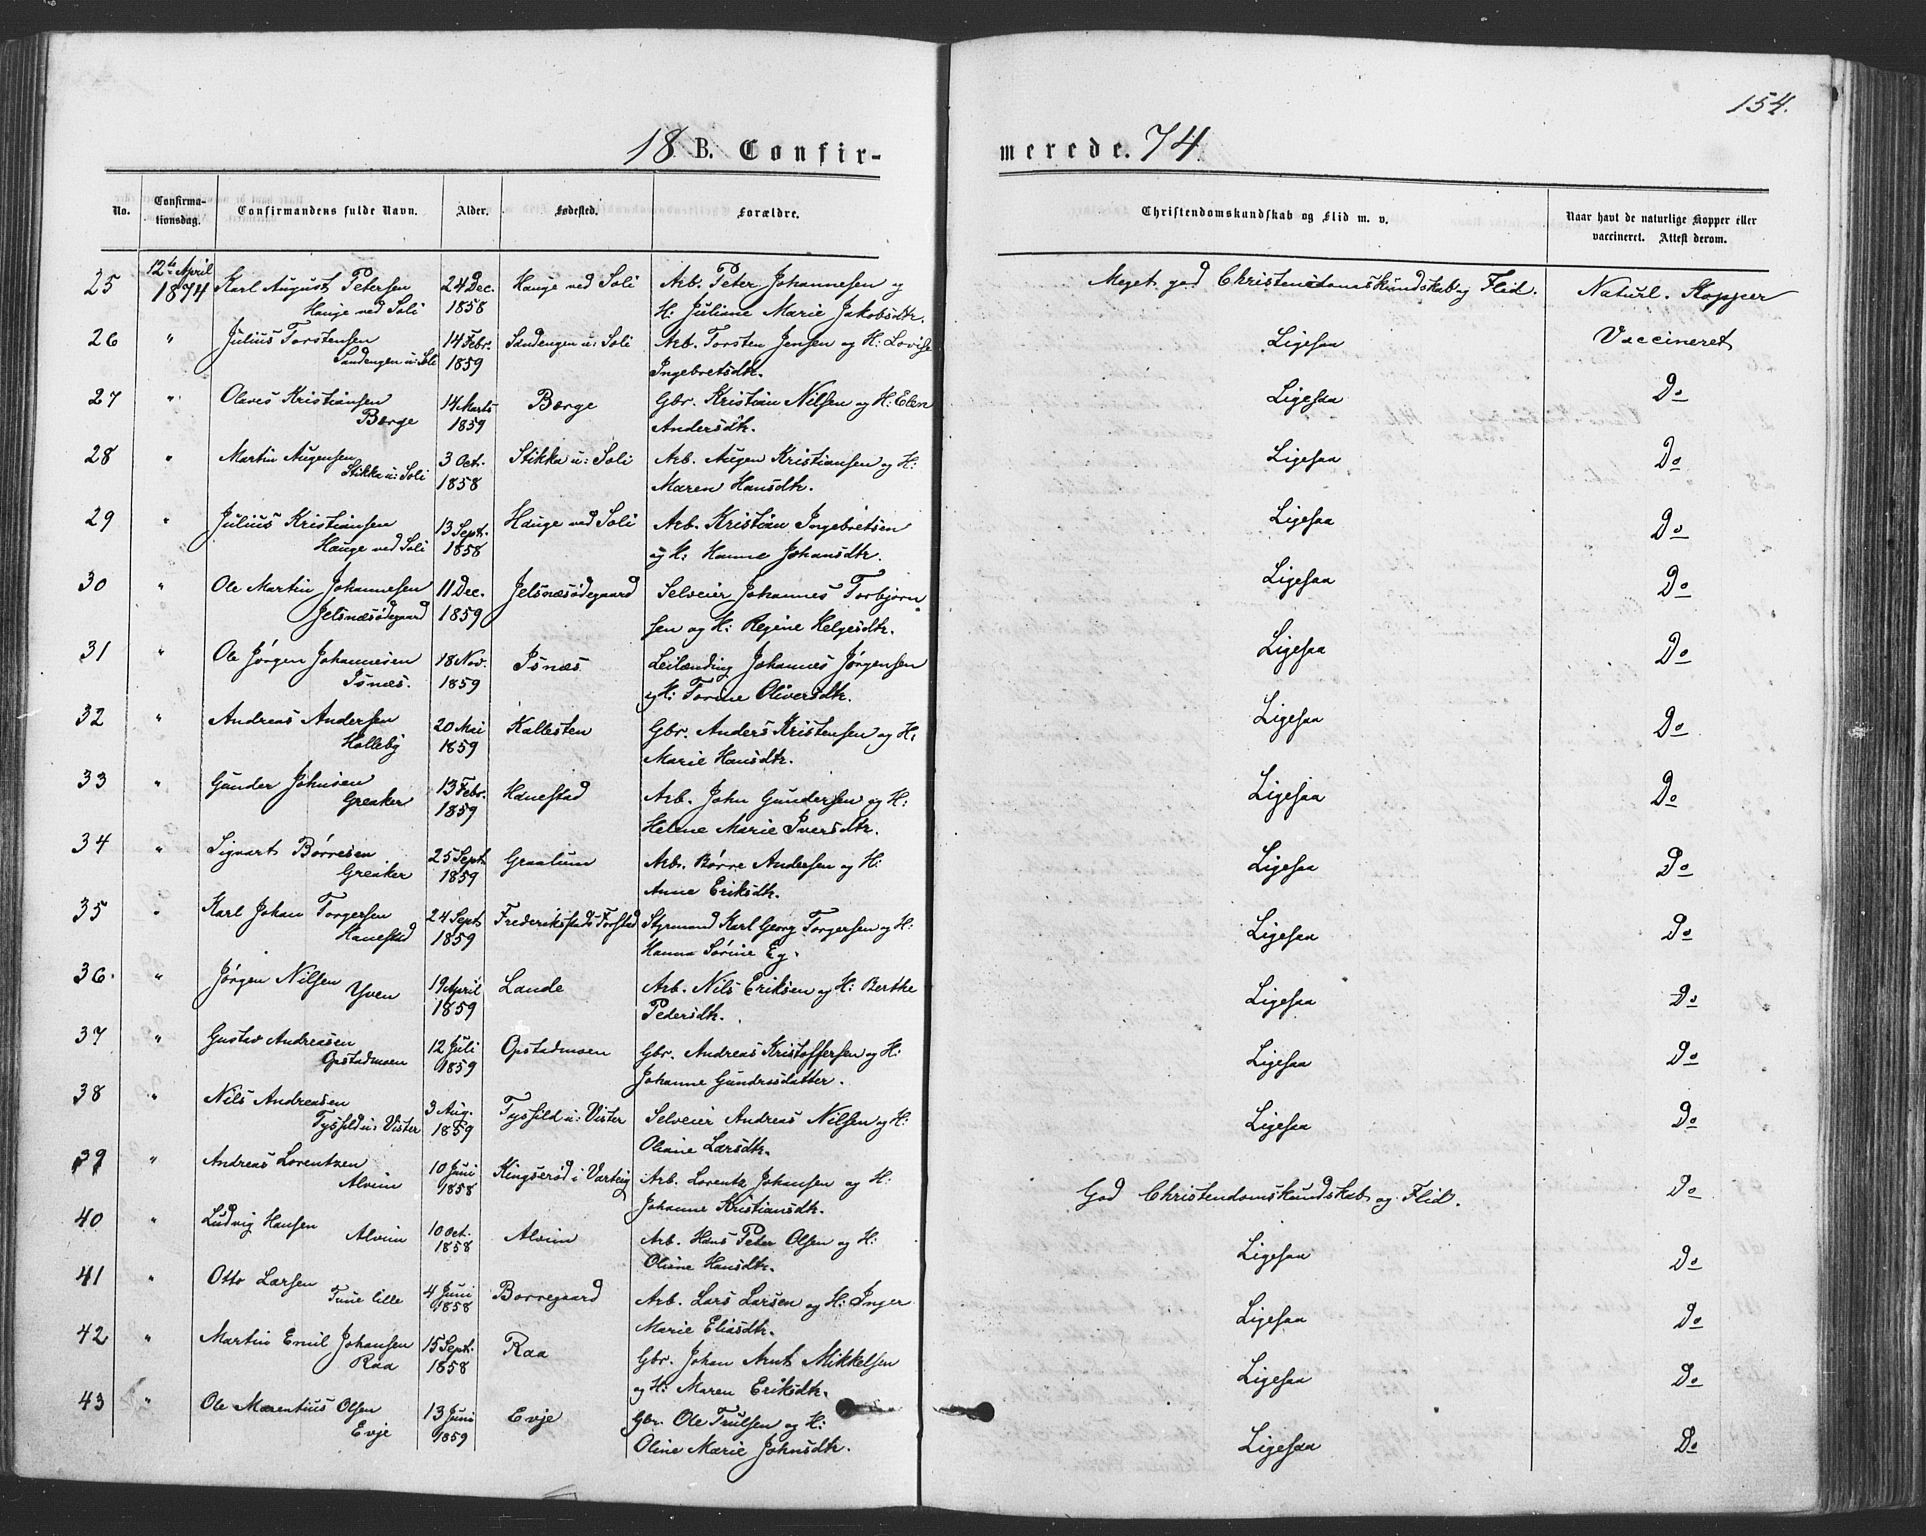 154.
18 B. Confir-
merede. 74.
No. Confirma-tionsdag. Confirmandens fulde Navn. Alder. Fødested. Forældre. Christendomskundskab og Flid m. v. Naar havt de naturlige Kopper eller vaccineret. Attest derom.
25 12te April Karl August Petersen 24 Dec. Hauge ved Soli Arb. Peter Johannesen og Meget god Christendomskundskab og Flid. Naturl. Kopper
1874 Hauge ved Soli 1858 H: Juliane Marie Jakobsdtr.
26 " Julius Torstensen 14 Febr. Sandengen u: Soli Arb. Torsten Jensen og H: Lovise Ligesaa Vaccineret
Sandengen u: Soli 1859 Ingebretsdtr.
27 " Olaves Kristiansen 14 Marts Børge Gbr. Kristian Nilsen og H: Elen Ligesaa Do
Børge 1859 Andersdtr.
28 " Martin Augensen 3 Oct. Stikka u: Soli Arb. Augen Kristiansen og H: Ligesaa Do
Stikka u: Soli 1858 Maren Hansdtr.
29 " Julius Kristiansen 13 Sept. Hauge ved Soli Arb. Kristian Ingebretsen Ligesaa Do
Hauge ved Soli 1858 og H: Hanne Johansdtr.
30 " Ole Martin Johannesen 11 Dec. Jelsnæsødegaard Selveier Johannes Torbjørn- Ligesaa Do
Jelsnæsødegaard 1859 sen og H: Regine Helgesdtr.
31 " Ole Jørgen Johannesen 18 Nov. Isnæs Leilænding Johannes Jørgensen Ligesaa Do
Isnæs. 1859 og H: Torine Oliversdtr.
32 " Andreas Andersen 20 Mai Kallesten Gbr. Anders Kristensen og H: Ligesaa Do
Holleby 1859 Marie Hansdtr.
33 " Gunder Johnsen 13 Febr. Hanestad Arb. John Gundersen og H: Ligesaa Do
Greaker 1859 Helene Marie Iversdtr.
34 " Sigvart Børresen 25 Sept. Graalum Arb. Børre Andersen og H: Ligesaa Do
Greaker 1859 Anne Eriksdtr.
35 " Karl Johan Torgersen 24 Sept. Frederikstads Forstad Styrmand Karl Georg Torgersen og H: Ligesaa Do
Hanestad 1859 Hanna Sørine Eg.
36. " Jørgen Nilsen 19 April Lande Arb. Nils Eriksen og H: Berthe Ligesaa Do
Yven 1859 Pedersdtr.
37 " Gustav Andreasen 12 Juli Opstadmoen Gbr. Andreas Kristoffersen og H: Ligesaa Do
Opstadmoen 1859 Johanne Gundersdatter.
38 " Nils Andreasen 3 Aug. Tysfild u: Vister Selveier Andreas Nilsen og H: Ligesaa Do
Tysfild u: Vister 1859 Oliane Larsdtr.
39 " Andreas Lorentzen 10 Juni Kingserød i Varteig Arb. Lorentz Johansen og H: God Christendomskundskab og Flid. Do
Alvim 1858 Johanne Kristiansdtr.
40 " Ludvig Hansen 10 Oct. Alvim Arb. Hans Peter Olsen og H: Ligesaa Do
Alvim 1858 Oliane Hansdtr.
41 " Otto Larsen 4 Juni Borregaard Arb. Lars Larsen og H: Inger Ligesaa Do
Tune lille 1858 Marie Eliasdtr.
42 " Martin Emil Johansen 15 Sept. Raa Gbr. Johan Arnt Mikkelsen Ligesaa Do
Raa 1858 og H: Maren Eriksdtr.
43 " Ole Marentius Olsen 13 Juni Evje Gbr. Ole Trulsen og H: Ligesaa Do
Evje 1859 Oline Marie Johnsdtr.